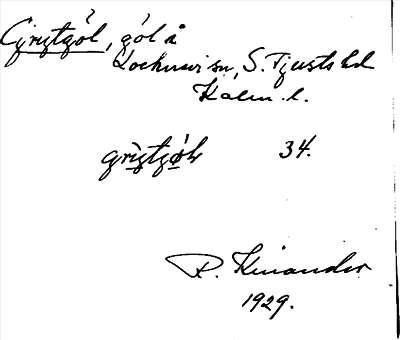 Grytgöl, göl å
Locknevi sn, S. Tjusts hd
Kalm. l.
34.
R. Kinander
1929.